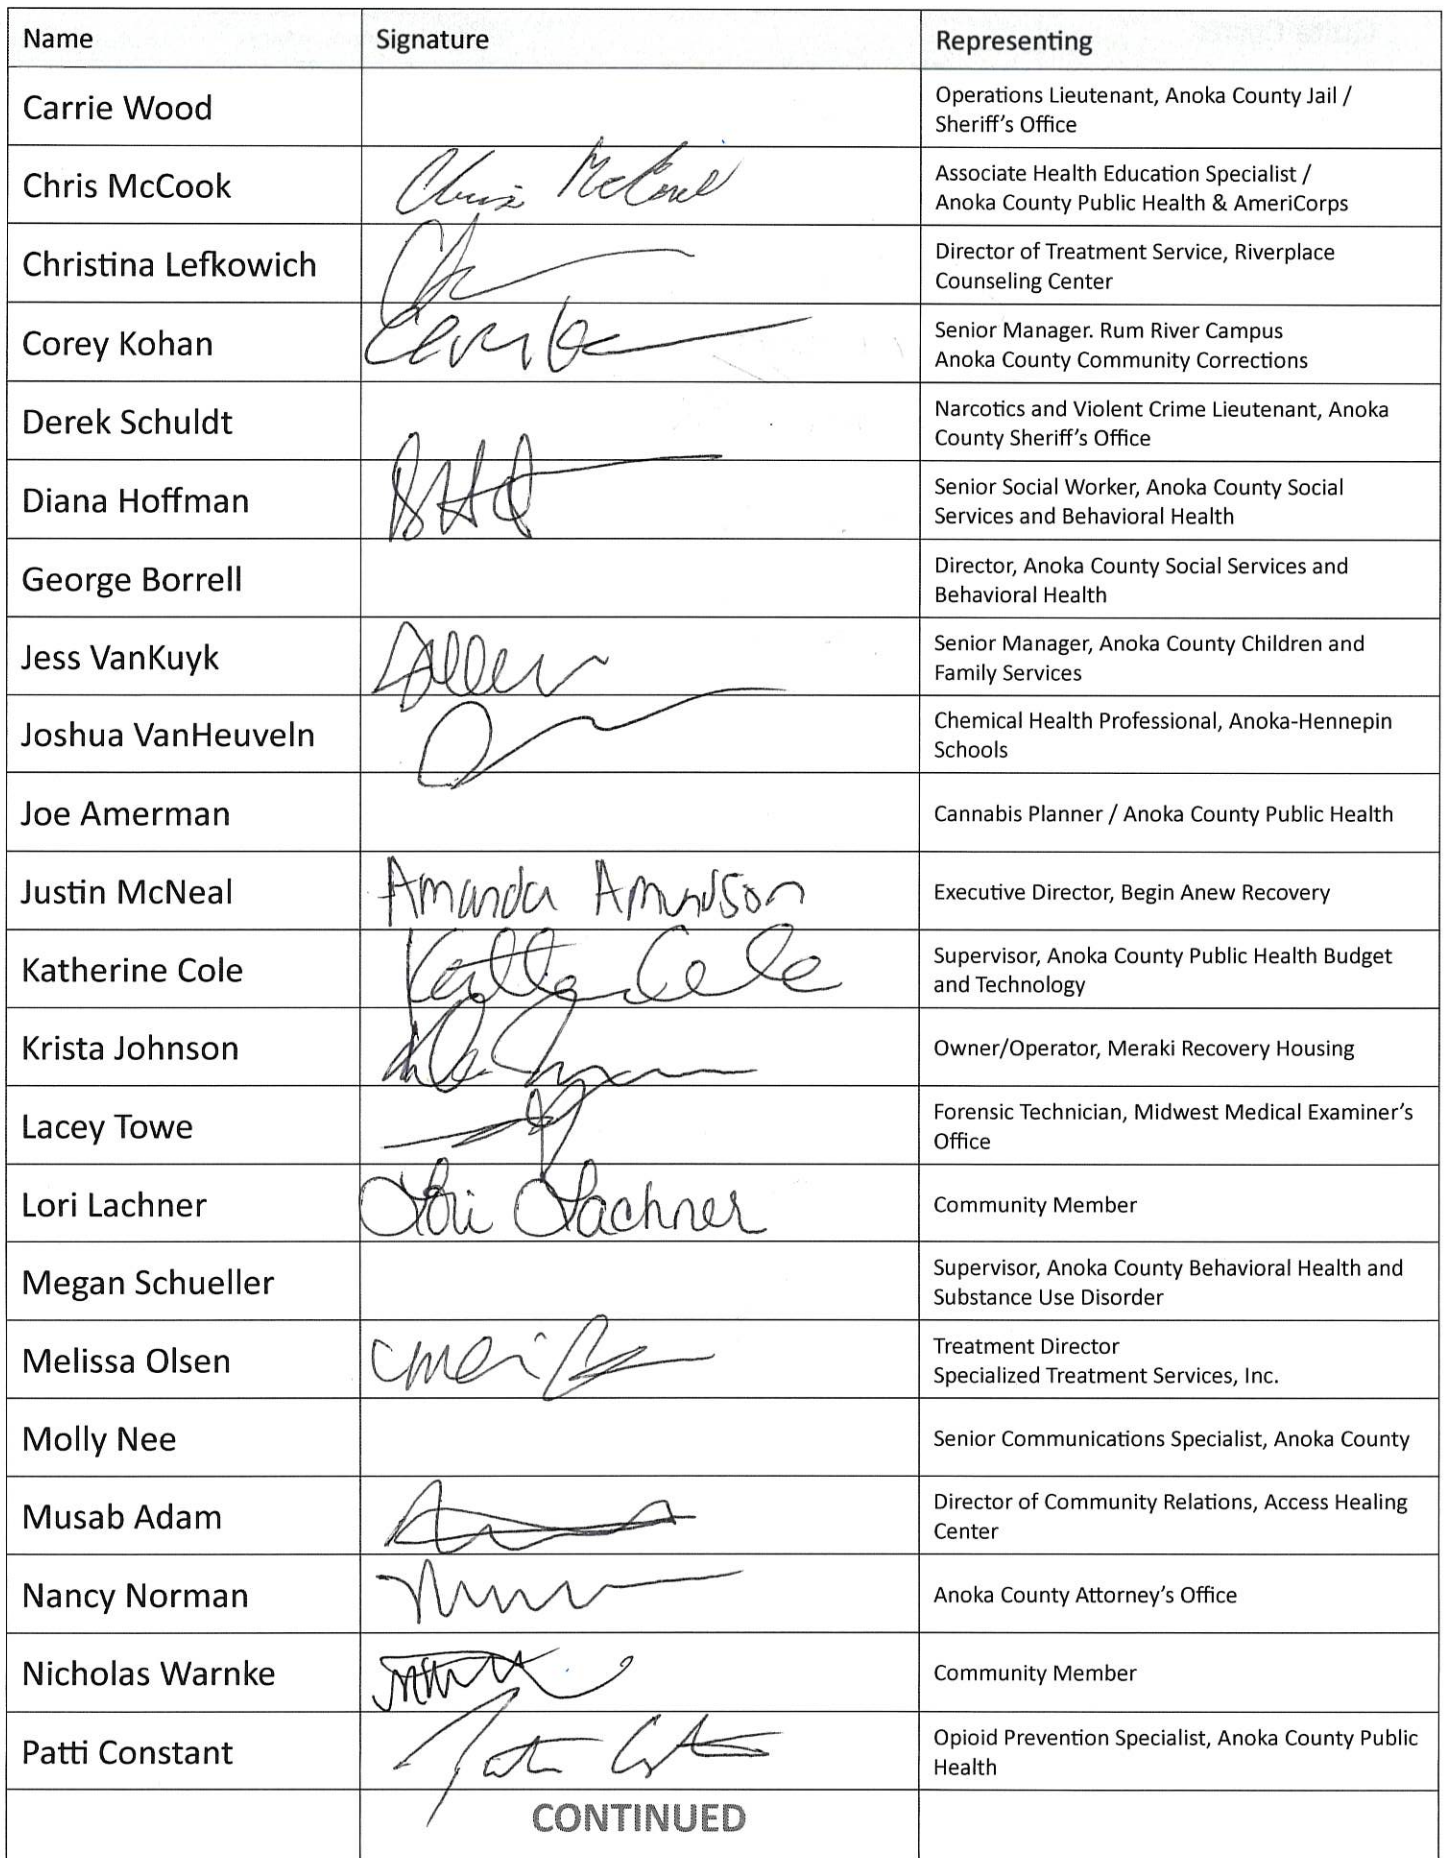 Name Signature Representing
Carrie Wood Operations Lieutenant, Anoka County Jail /
Sheriff's Office
Chris McCook Chris McCook Associate Health Education Specialist /
Anoka County Public Health & AmeriCorps
Christina Lefkowich Director of Treatment Service, Riverplace
Counseling Center
Corey Kohan Senior Manager. Rum River Campus
Anoka County Community Corrections
Derek Schuldt Narcotics and Violent Crime Lieutenant, Anoka
County Sheriff's Office
Diana Hoffman Senior Social Worker, Anoka County Social
Services and Behavioral Health
George Borrell Director, Anoka County Social Services and
Behavioral Health
Jess VanKuyk Senior Manager, Anoka County Children and
Family Services
Joshua VanHeuveln Chemical Health Professional, Anoka-Hennepin
Schools
Joe Amerman Cannabis Planner / Anoka County Public Health
Justin McNeal Amanda Amundson Executive Director, Begin Anew Recovery
Katherine Cole Supervisor, Anoka County Public Health Budget
and Technology
Krista Johnson Owner/Operator, Meraki Recovery Housing
Lacey Towe Forensic Technician, Midwest Medical Examiner's
Office
Lori Lachner Lori Lachner Community Member
Megan Schueller Supervisor, Anoka County Behavioral Health and
Substance Use Disorder
Melissa Olsen Treatment Director
Specialized Treatment Services, Inc.
Molly Nee Senior Communications Specialist, Anoka County
Musab Adam Director of Community Relations, Access Healing
Center
Nancy Norman Anoka County Attorney's Office
Nicholas Warnke Community Member
Patti Constant Opioid Prevention Specialist, Anoka County Public
Health
CONTINUED